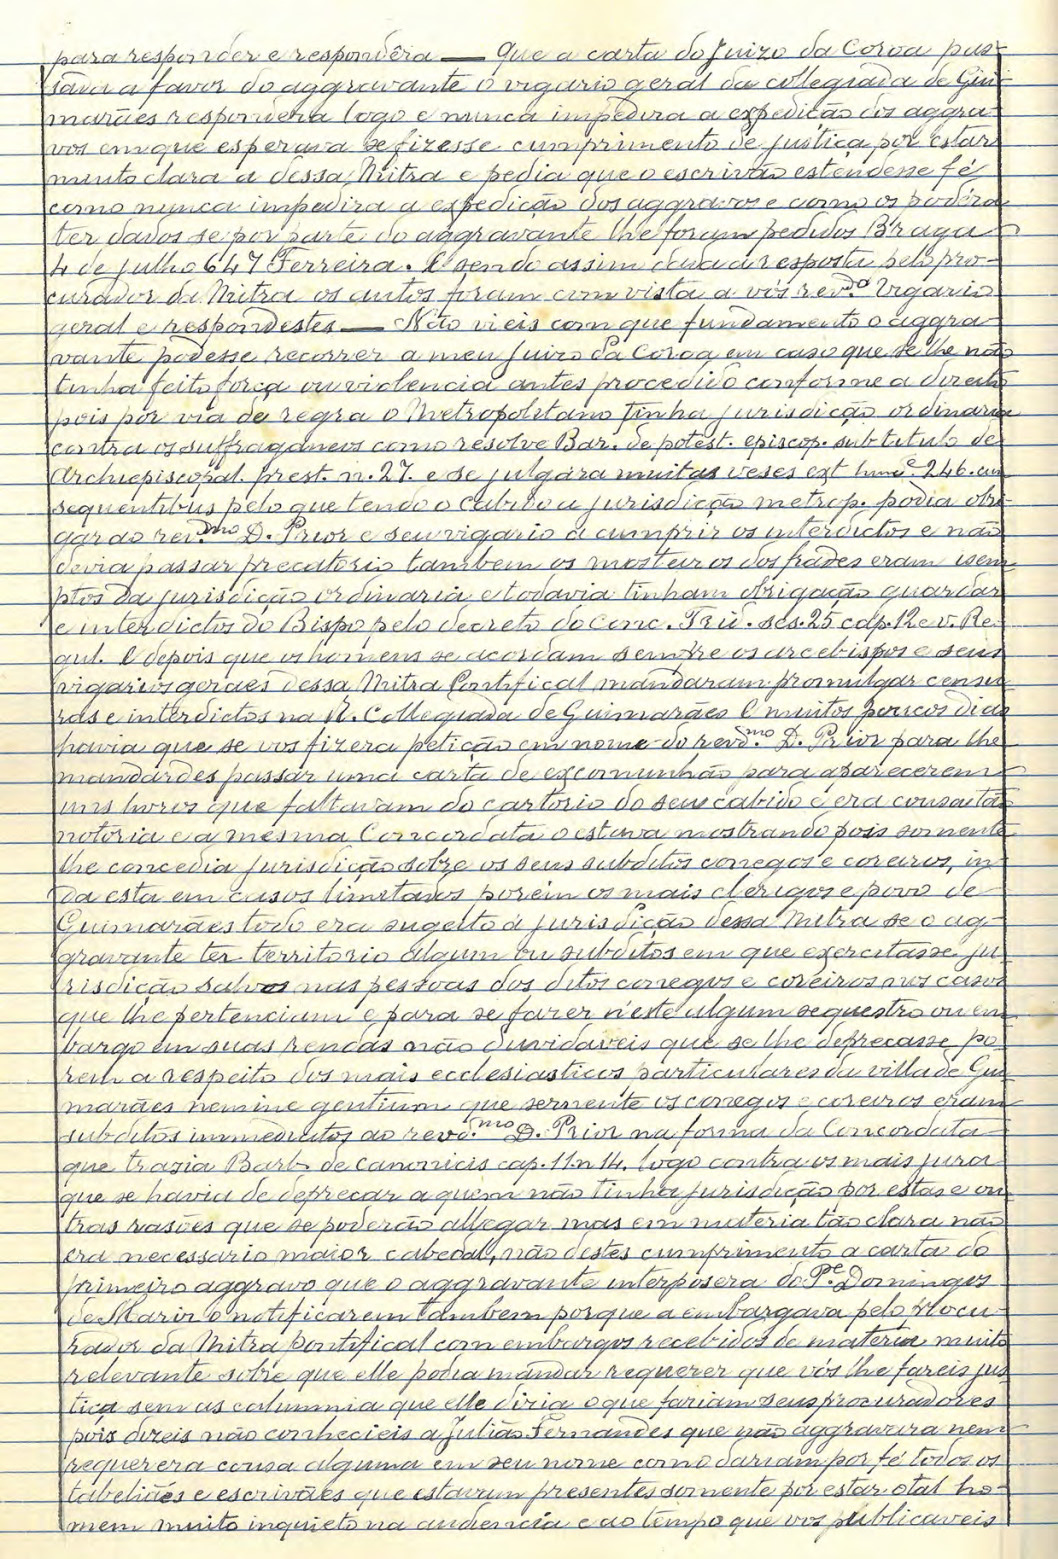 para responder e respondêra — Que a carta do Juizo da Coroa pas-
sava a favor do aggravante o vigario geral da collegiada de Gui-
marães respondera logo e nunca impedira a expedição dos aggra-
vos em que esperava se fizesse cumprimento de justiça por estar
muito clara a dessa Mitra e pedia que o escrivão estendesse fé
como nunca impedira a expedição dos aggravos e como os podéra
ter dados se por parte do aggravante lhe foram pedidos Braga
4 de julho 647 Ferreira. E sendo assim dava a resposta pelo pro-
curador da Mitra os autos foram com vista a vós rev.do Vigario
geral e respondestes — Não vieis com que fundamento o aggra-
vante podesse recorrer a meu Juizo da Coroa em caso que se lhe não
tinha feito força ou violencia antes procedido conforme a direito
pois por via de regra o Metropolitano tinha jurisdição ordinaria
contra os suffraganeos como resolve Bar. de potest. episcop. sub titulo de
Archiepiscopal. prest. n. 27. e se julgára muitas veses ext. 246. cum
sequentibus pelo que tendo o Cabido a jurisdição metrop. podia obri-
gar ao rev.mo D. Prior e seu vigario a cumprir os interdictos e não
devia passar precatorio tambem os mosteiros dos frades eram isem-
ptos da jurisdição ordinaria e todavia tinham obrigação guardar
e interdictos do Bispo pelo decreto do Conc. Trid. ses. 25 cap. 12 e v. Re-
gul. E depois que os homens se acordam sempre os arcebispos e seus
vigarios geraes dessa Mitra Pontifical mandaram promulgar censu-
ras e interdictos na R. Collegiada de Guimarães E muitos poucos dias
havia que se vos fizera petição em nome do revd.mo D. Prior para lhe
mandardes passar uma carta de excomunhão para aparecerem
uns livros que faltavam do cartorio do seu cabido e era cousa tão
notoria e a mesma Concordata o estava mostrando pois somente
lhe concedia jurisdição sobre os seus subditos conegos e coreiros, in-
da esta em casos limitados porém os mais clerigos e povo de
Guimarães todo era sugeito á jurisdição dessa Mitra se o ag-
gravante ter territorio algum ou subditos em que exercitasse ju-
risdição salvos nas pessoas dos ditos conegos e coreiros nos casos
que lhe pertenciam e para se fazer n'este algum sequestro ou em-
bargo em suas rendas não duvidaveis que se lhe deprecasse po-
rem a respeito dos mais ecclesiasticos particulares da villa de Gui-
marães nemine gentium que sermente os conegos e coreiros eram
subditos immediatos ao revd.mo D. Prior na forma da Concordata
que trasia Barb. de canonicis cap. 11. n 14. logo contra os mais jura
que se havia de deprecar a quem não tinha jurisdição por estas e ou-
tras rasões que se poderão allegar mas em materia tão clara não
era necessario maior cabedal, não destes cumprimento a carta do
primeiro aggravo que o aggravante interpôsera do P.e Domingos
de Marir o notificarem tambem porque a embargava pelo Procu-
rador da Mitra pontifical com embargos recebidos de materia muito
relevante sobre que elle podia mandar requerer que vós lhe farieis jus-
tiça sem as calumnia que elle diria o que fariam seus procuradores
pois dizeis não conhecieis a Julião Fernandes que não aggravara nem
requerera cousa alguma em seu nome como dariam por fé todos os
tabeliães e escrivães que estavam presentes somente por estar o tal ho-
mem muito inquieto na audiencia e ao tempo que vos publicaveis